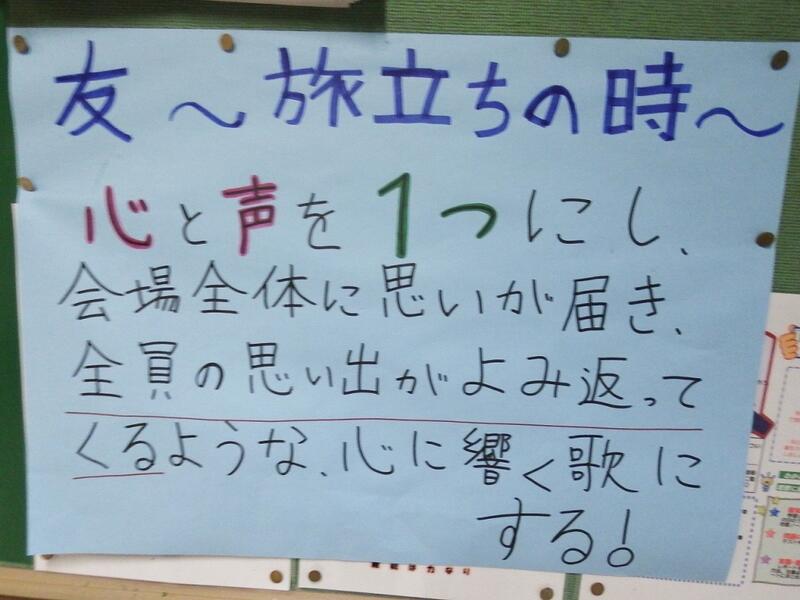 友 ～ 旅立ちの時～
心と声を1つにし、
会場全体に思いが届き、
全員の思い出がよみ返って
くるような、心に響く歌に
する!